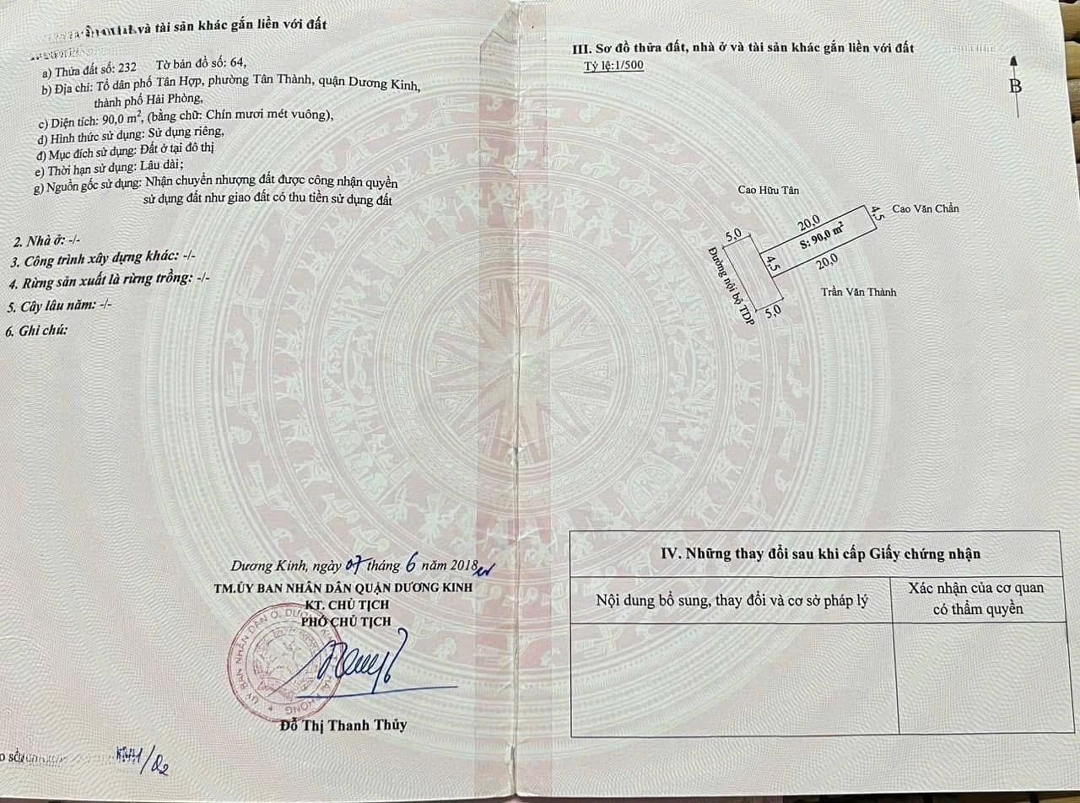 và tài sản khác gắn liền với đất
a) Thửa đất số: 232 Tờ bản đồ số: 64,
b) Địa chỉ: Tổ dân phố Tân Hợp, phường Tân Thành, quận Dương Kinh,
thành phố Hải Phòng,
c) Diện tích: 90,0 m², (bằng chữ: Chín mươi mét vuông),
d) Hình thức sử dụng: Sử dụng riêng,
đ) Mục đích sử dụng: Đất ở tại đô thị
e) Thời hạn sử dụng: Lâu dài;
g) Nguồn gốc sử dụng: Nhận chuyển nhượng đất được công nhận quyền
sử dụng đất như giao đất có thu tiền sử dụng đất
2. Nhà ở: -/-
3. Công trình xây dựng khác: -/-
4. Rừng sản xuất là rừng trồng: -/-
5. Cây lâu năm: -/-
6. Ghi chú:
Dương Kinh, ngày 07 tháng 6 năm 2018
TM.ỦY BAN NHÂN DÂN QUẬN DƯƠNG KINH
KT. CHỦ TỊCH
PHÓ CHỦ TỊCH
Đỗ Thị Thanh Thủy
III. Sơ đồ thửa đất, nhà ở và tài sản khác gắn liền với đất
Tỷ lệ:1/500
B
Cao Hữu Tân
20,0
4,5
Cao Văn Chẩn
S: 90,0 m²
5,0
4,5
20,0
Đường nội bộ TDP
Trần Văn Thành
5,0
IV. Những thay đổi sau khi cấp Giấy chứng nhận
Nội dung bổ sung, thay đổi và cơ sở pháp lý
Xác nhận của cơ quan
có thẩm quyền